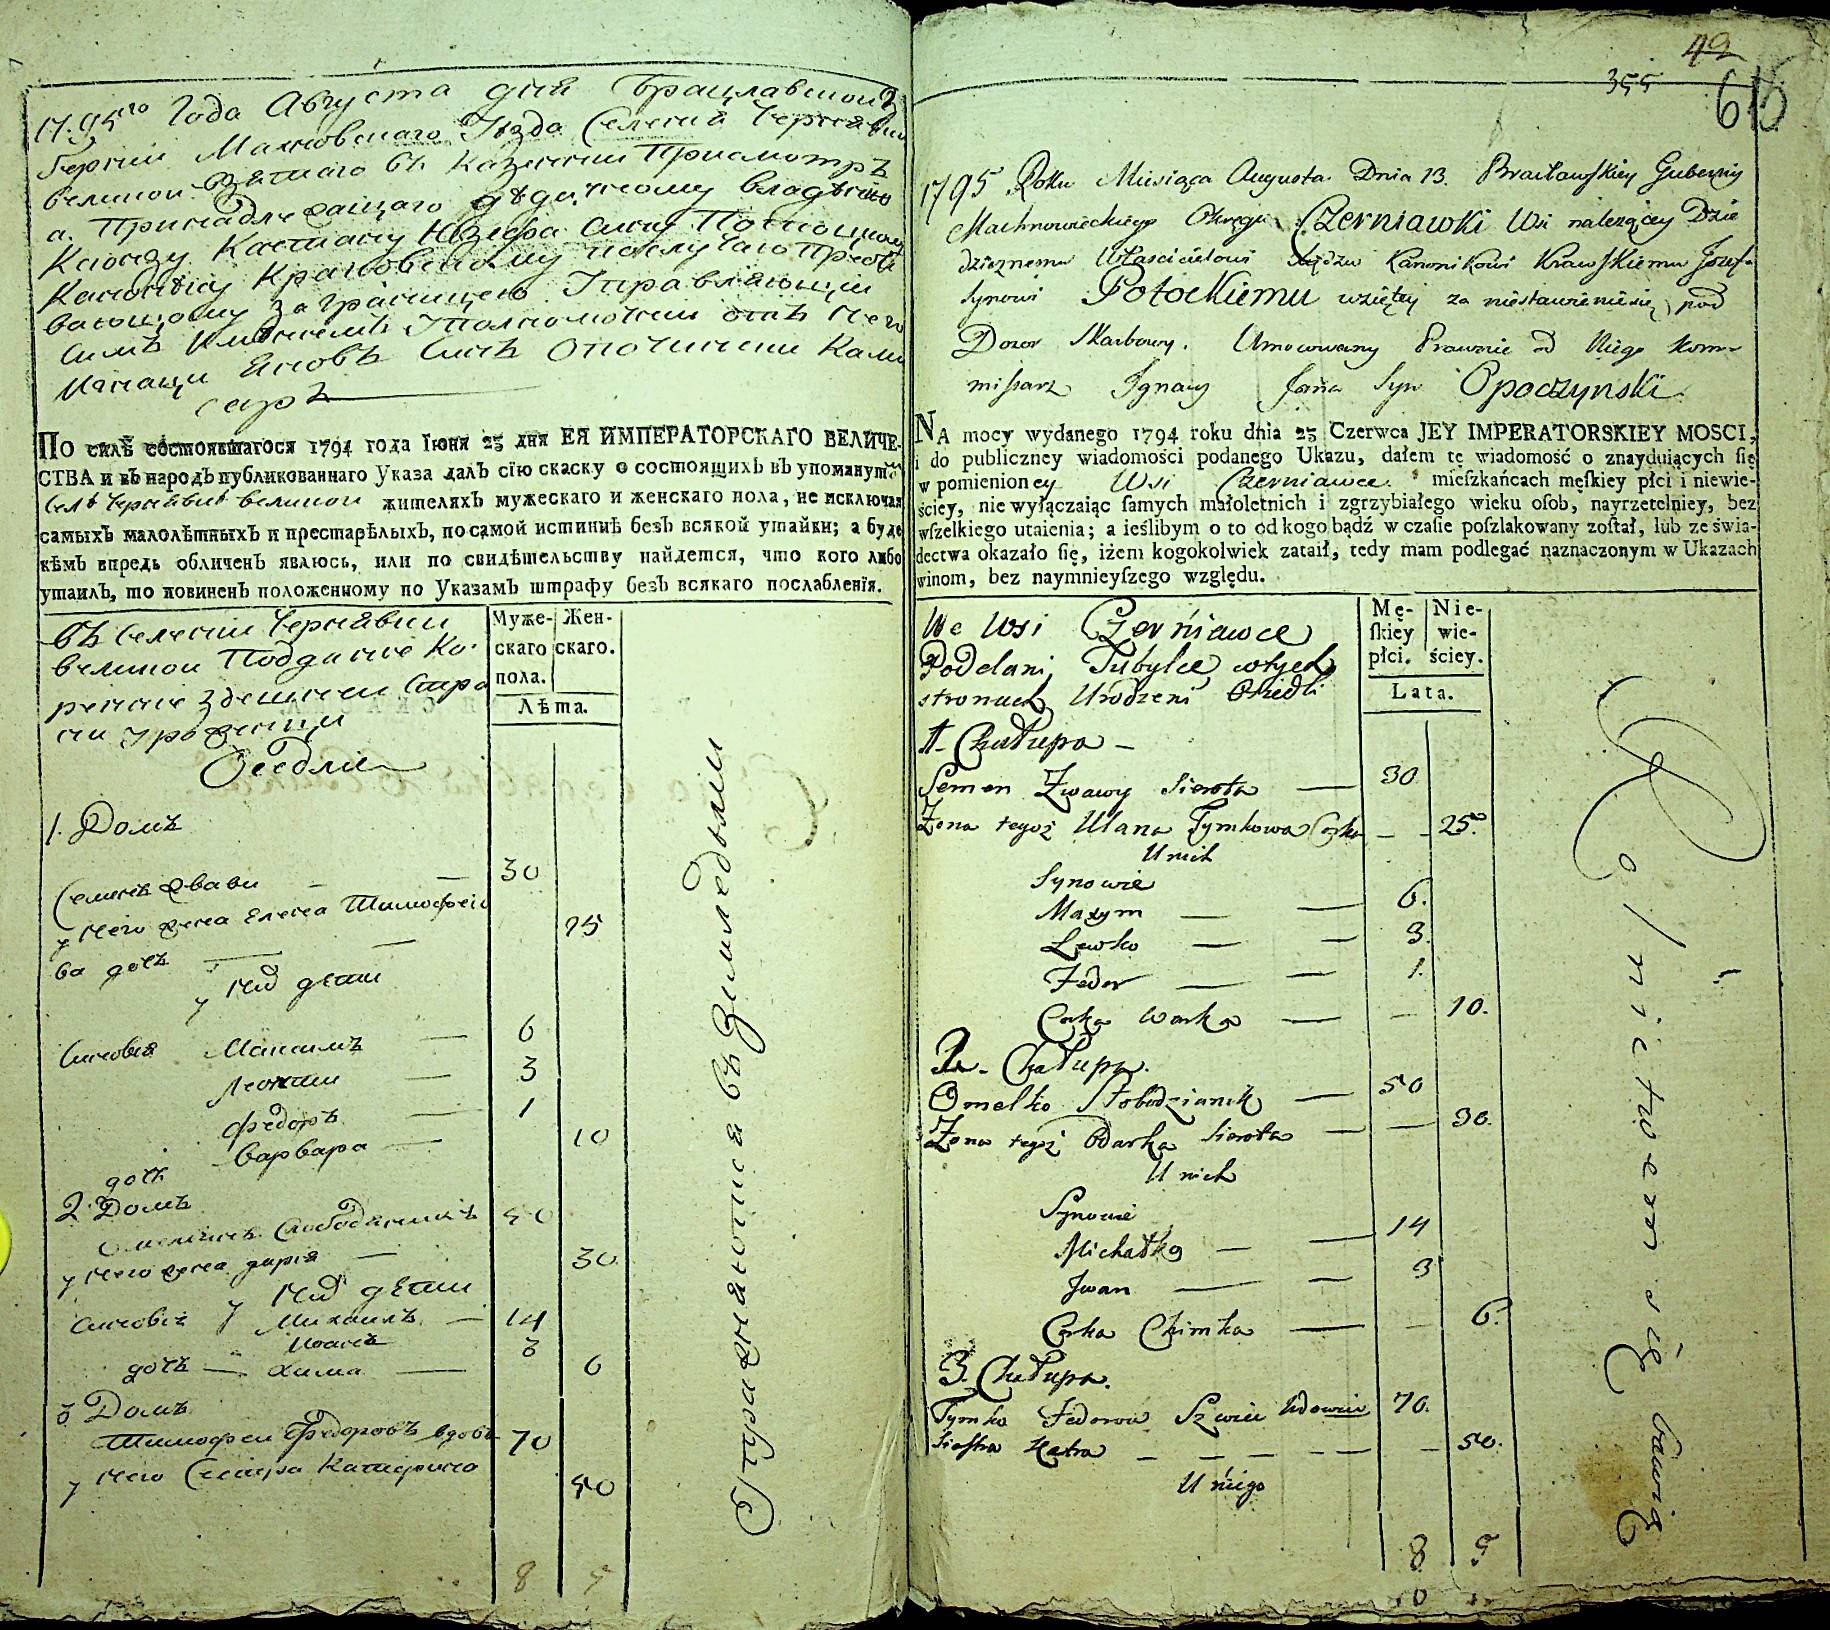 17.95го Года Августа дня Брацлавской
Губерніи Махновскаго Уезда Селеніи Чернявки
великой взятаго въ Казенный Присмотръ
а Принадлежащаго дедичному владѣльцу
Ксіонзу Каетану Юзефа сыну Потоцкому
Канонику Краковскому
за границею Управляющи
симъ имѣніемъ отъ него
Игнаци Яновъ Сынъ Опочински Коми
саръ
По силѣ состоявшагося 1794 года Іюня 23 дня ЕЯ ИМПЕРАТОРСКАГО ВЕЛИЧЕ-
СТВА и въ народъ публикованнаго Указа далъ сїю скаску о состоящихъ въ упомянутой
Селѣ Чернявке великой жителяхъ мужескаго и женскаго пола, не исключая
самыхъ малолѣтныхъ и престарѣлыхъ, по самой истиннѣ безъ всякой утайки; а буде
кѣмъ впредь обличенъ явлюсь, или по свидѣтельству найдется, что кого либо
утаилъ, то повиненъ положенному по Указамъ штрафу безъ всякаго послабленїя.
Въ Селеніи Чернявки
великой Подданніе Ко-
ренніе здешней Сторо
ни урожденци
Оседліе
Муже- Жен-
скаго скаго.
пола.
Лѣта.
1. Домъ
Семенъ Жвави — 30
у него жена Елена Тимофее 25
ва дочь —
у них дети
Синовья Максимъ — 6
Леонтии — 3
Федоръ — 1
дочь Варвара — 10
2. Домъ
Омелянъ Слободяникъ 50
у него жена дарія — 30
у них дети
синовья Михаилъ — 14
Иванъ 3
дочь — Хима — 6
3 Домъ
Тимофеи Федоровъ вдовъ 70
у него Сестра Катерина 50
8
Упражняются въ Земледелии
49
355
615
1795 Roku Miesiąca Augusta Dnia 13. Bracławskiey Guberniy
Machnowieckiego Okręgu Czerniawki Wsi należącey Dzie
dzicznemu Właścicielowi Xiędzu Kanonikowi Krawskiemu Jozefa
Synowi Potockiemu wziętey za niestawieniesię pod
Dozor Skarbowy. Umocowany Prawnie od Niego Kom-
missarz Ignacy Jana Syn Opoczynski
NA mocy wydanego 1794 roku dnia 23 Czerwca JEY IMPERATORSKIEY MOSCI,
i do publiczney wiadomości podanego Ukazu, dałem tę wiadomość o znayduiących ſię
w pomienioney Wsi Czerniawce mieſzkańcach męſkiey płci i niewie-
ściey, nie wyłączaiąc ſamych małoletnich i zgrzybiałego wieku oſob, nayrzetelniey, bez
wſzelkiego utaienia; a ieślibym o to od kogo bądź w czaſie poſzlakowany zoſtał, lub ze świa-
dectwa okazało ſię, iżem kogokolwiek zataił, tedy mam podlegać naznaczonym w Ukazach
winom, bez naymnieyſzego względu.
We Wsi Czerniawce
Poddani, Tubylce wtych
stronach Urodzeni Osiedli
Mę- Nie-
ſkiey wie-
płci. ściey.
Lata.
1. Chałupa —
Semen Zwawy Sierota — 30
Żona tegoż Ulana Tymkowa Corka — 25
U nich
Synowie
Maxym — 6.
Lewko — 3.
Fedor — 1.
Corka Warka — 10.
2. Chałupa.
Omelko Słobodzianik — 50
Żona tegoż Odarka Sierota — 30.
U nich
Synowie
Michałko — 14
Jwan — 3
Corka Chimka — 6.
3. Chałupa.
Tymko Fedorow Szwiec Wdowiec 70.
Siostra Katra — 50.
U niego
8 5
Rolnictwem się bawią